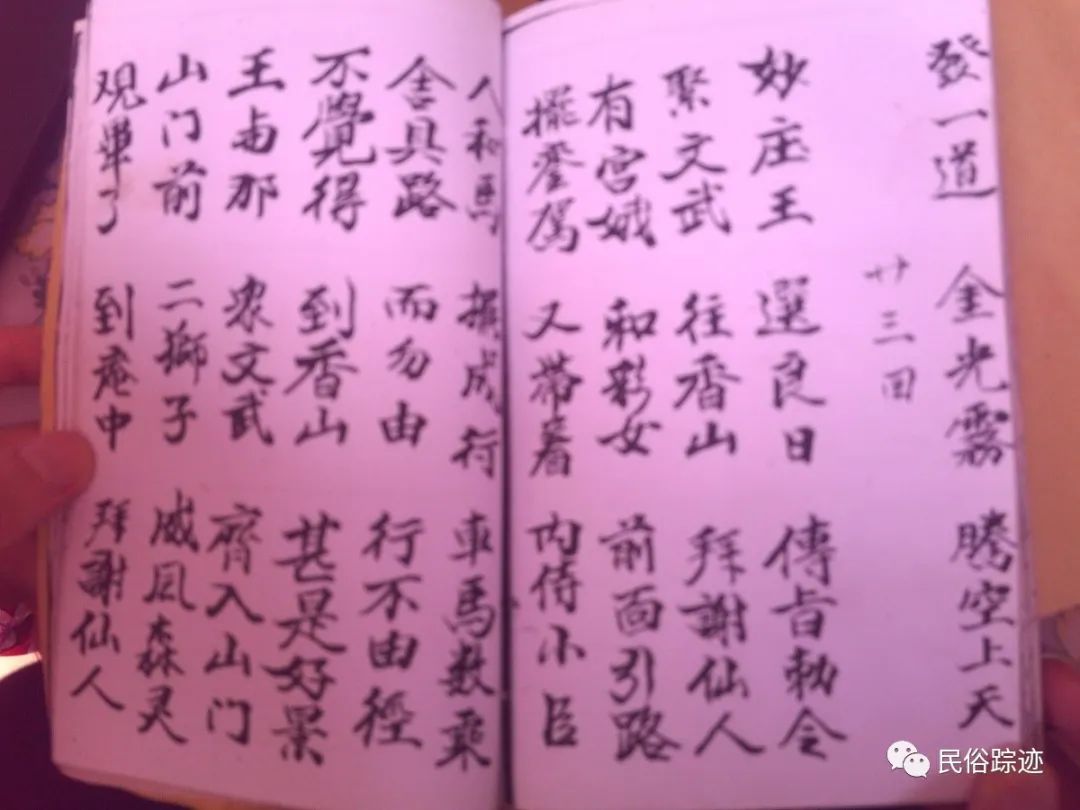 發一道 金光霧 騰空上天
廿三回
妙庄王 選良日 傳旨勅令
聚文武 往香山 拜謝仙人
有宫娥 和彩女 前面引路
擺銮駕 又帶着 内侍小臣
人和馬 摆成行 車馬数乘
舍具路 而勿由 行不由徑
不覺得 到香山 甚是好景
王向那 衆文武 齊入山门
山门前 二獅子 威凨森灵
观畢了 到庵中 拜謝仙人
民俗踪迹